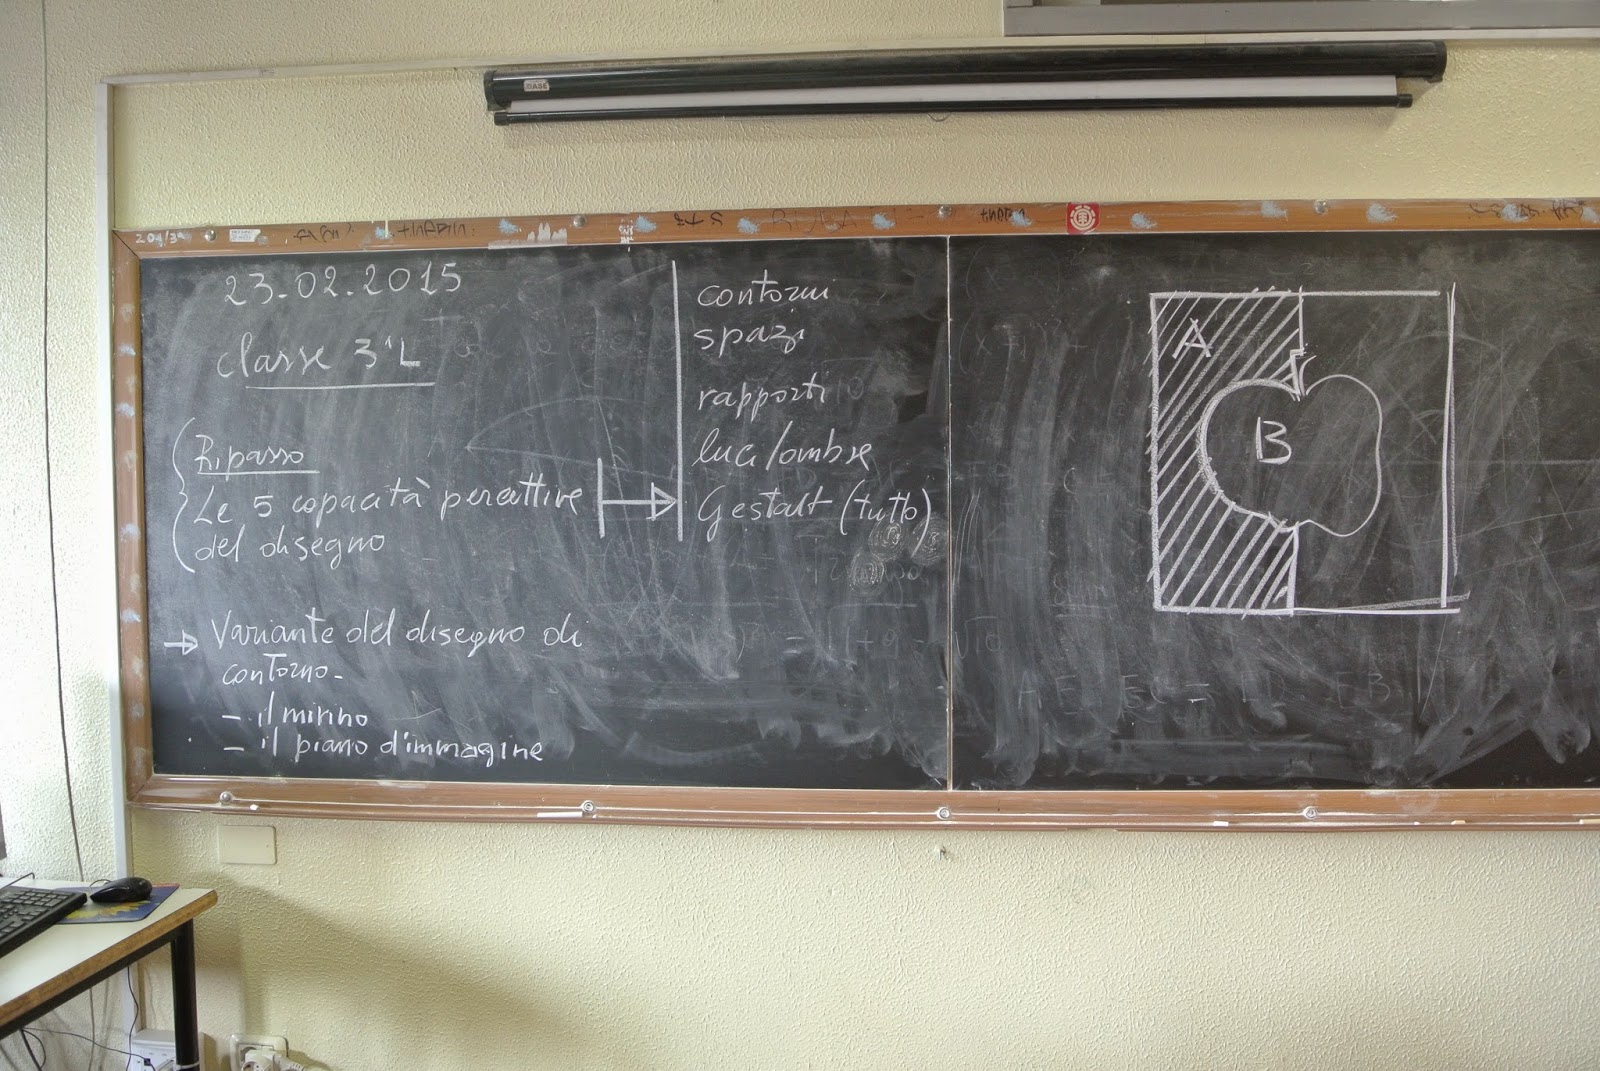 DASE
204/3ª
23-02-2015
classe 3ªL
Ripasso
Le 5 capacità percettive
del disegno
contorni
spazi
rapporti
luci/ombre
Gestalt (tutto)
→ Variante del disegno di
contorno-
- il mirino
- il piano d'immagine
A
B